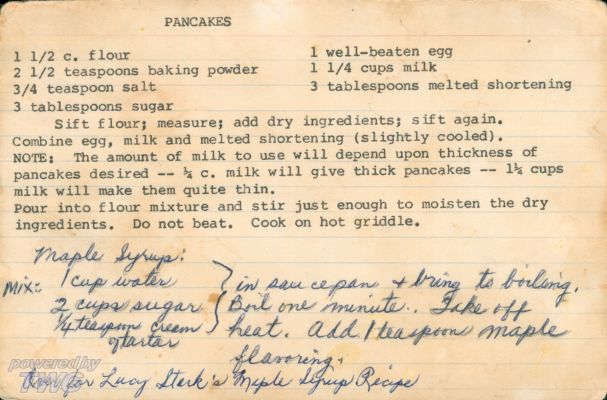 PANCAKES
1 1/2 c. flour
2 1/2 teaspoons baking powder
3/4 teaspoon salt
3 tablespoons sugar
1 well-beaten egg
1 1/4 cups milk
3 tablespoons melted shortening
Sift flour; measure; add dry ingredients; sift again.
Combine egg, milk and melted shortening (slightly cooled).
NOTE: The amount of milk to use will depend upon thickness of
pancakes desired -- ¼ c. milk will give thick pancakes -- 1¼ cups
milk will make them quite thin.
Pour into flour mixture and stir just enough to moisten the dry
ingredients. Do not beat. Cook on hot griddle.
Maple Syrup:
Mix:
1 cup water
2 cups sugar
1/4 teaspoon cream
of tartar
in saucepan + bring to boiling.
Boil one minute.. Take off
heat. Add 1 teaspoon maple
flavoring.
Over for Lucy Stark's Maple Syrup Recipe
powered by
TWG